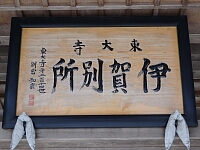 東大寺
伊賀別所